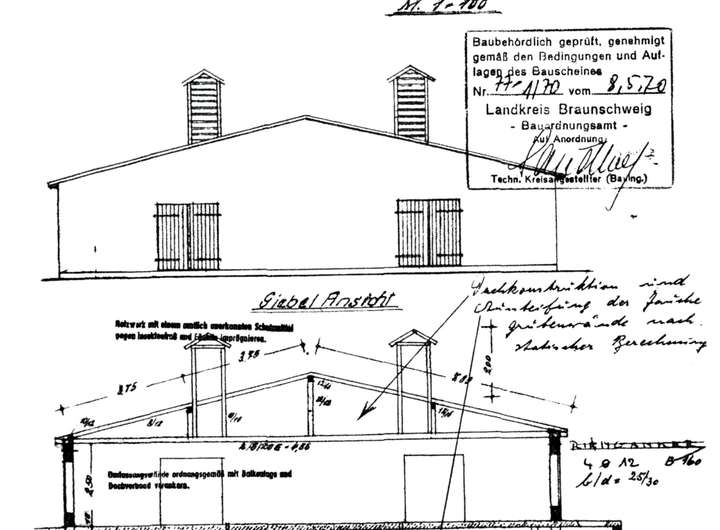 M. 1-100
Baubehördlich geprüft, genehmigt
gemäß den Bedingungen und Auf-
lagen des Bauscheines
Nr. 77-1/70 vom 8.5.70
Landkreis Braunschweig
- Bauordnungsamt -
Auf Anordnung:
Techn. Kreisangestellter (Baying.)
Giebel Ansicht
Dachkonstruktion und
Aussteifung der Jauche
grubenwände nach
statischer Berechnung
Holzwerk mit einem amtlich anerkannten Schutzmittel
gegen Insektenfraß und Fäulnis imprägnieren.
3.75
3.75
2.00
8/12
Umfassungswände ordnungsgemäß mit Balkenlage und
Dachverband verankern.
2.50
RINGANKER
4 ∅ 12 B 160
b/d = 25/30